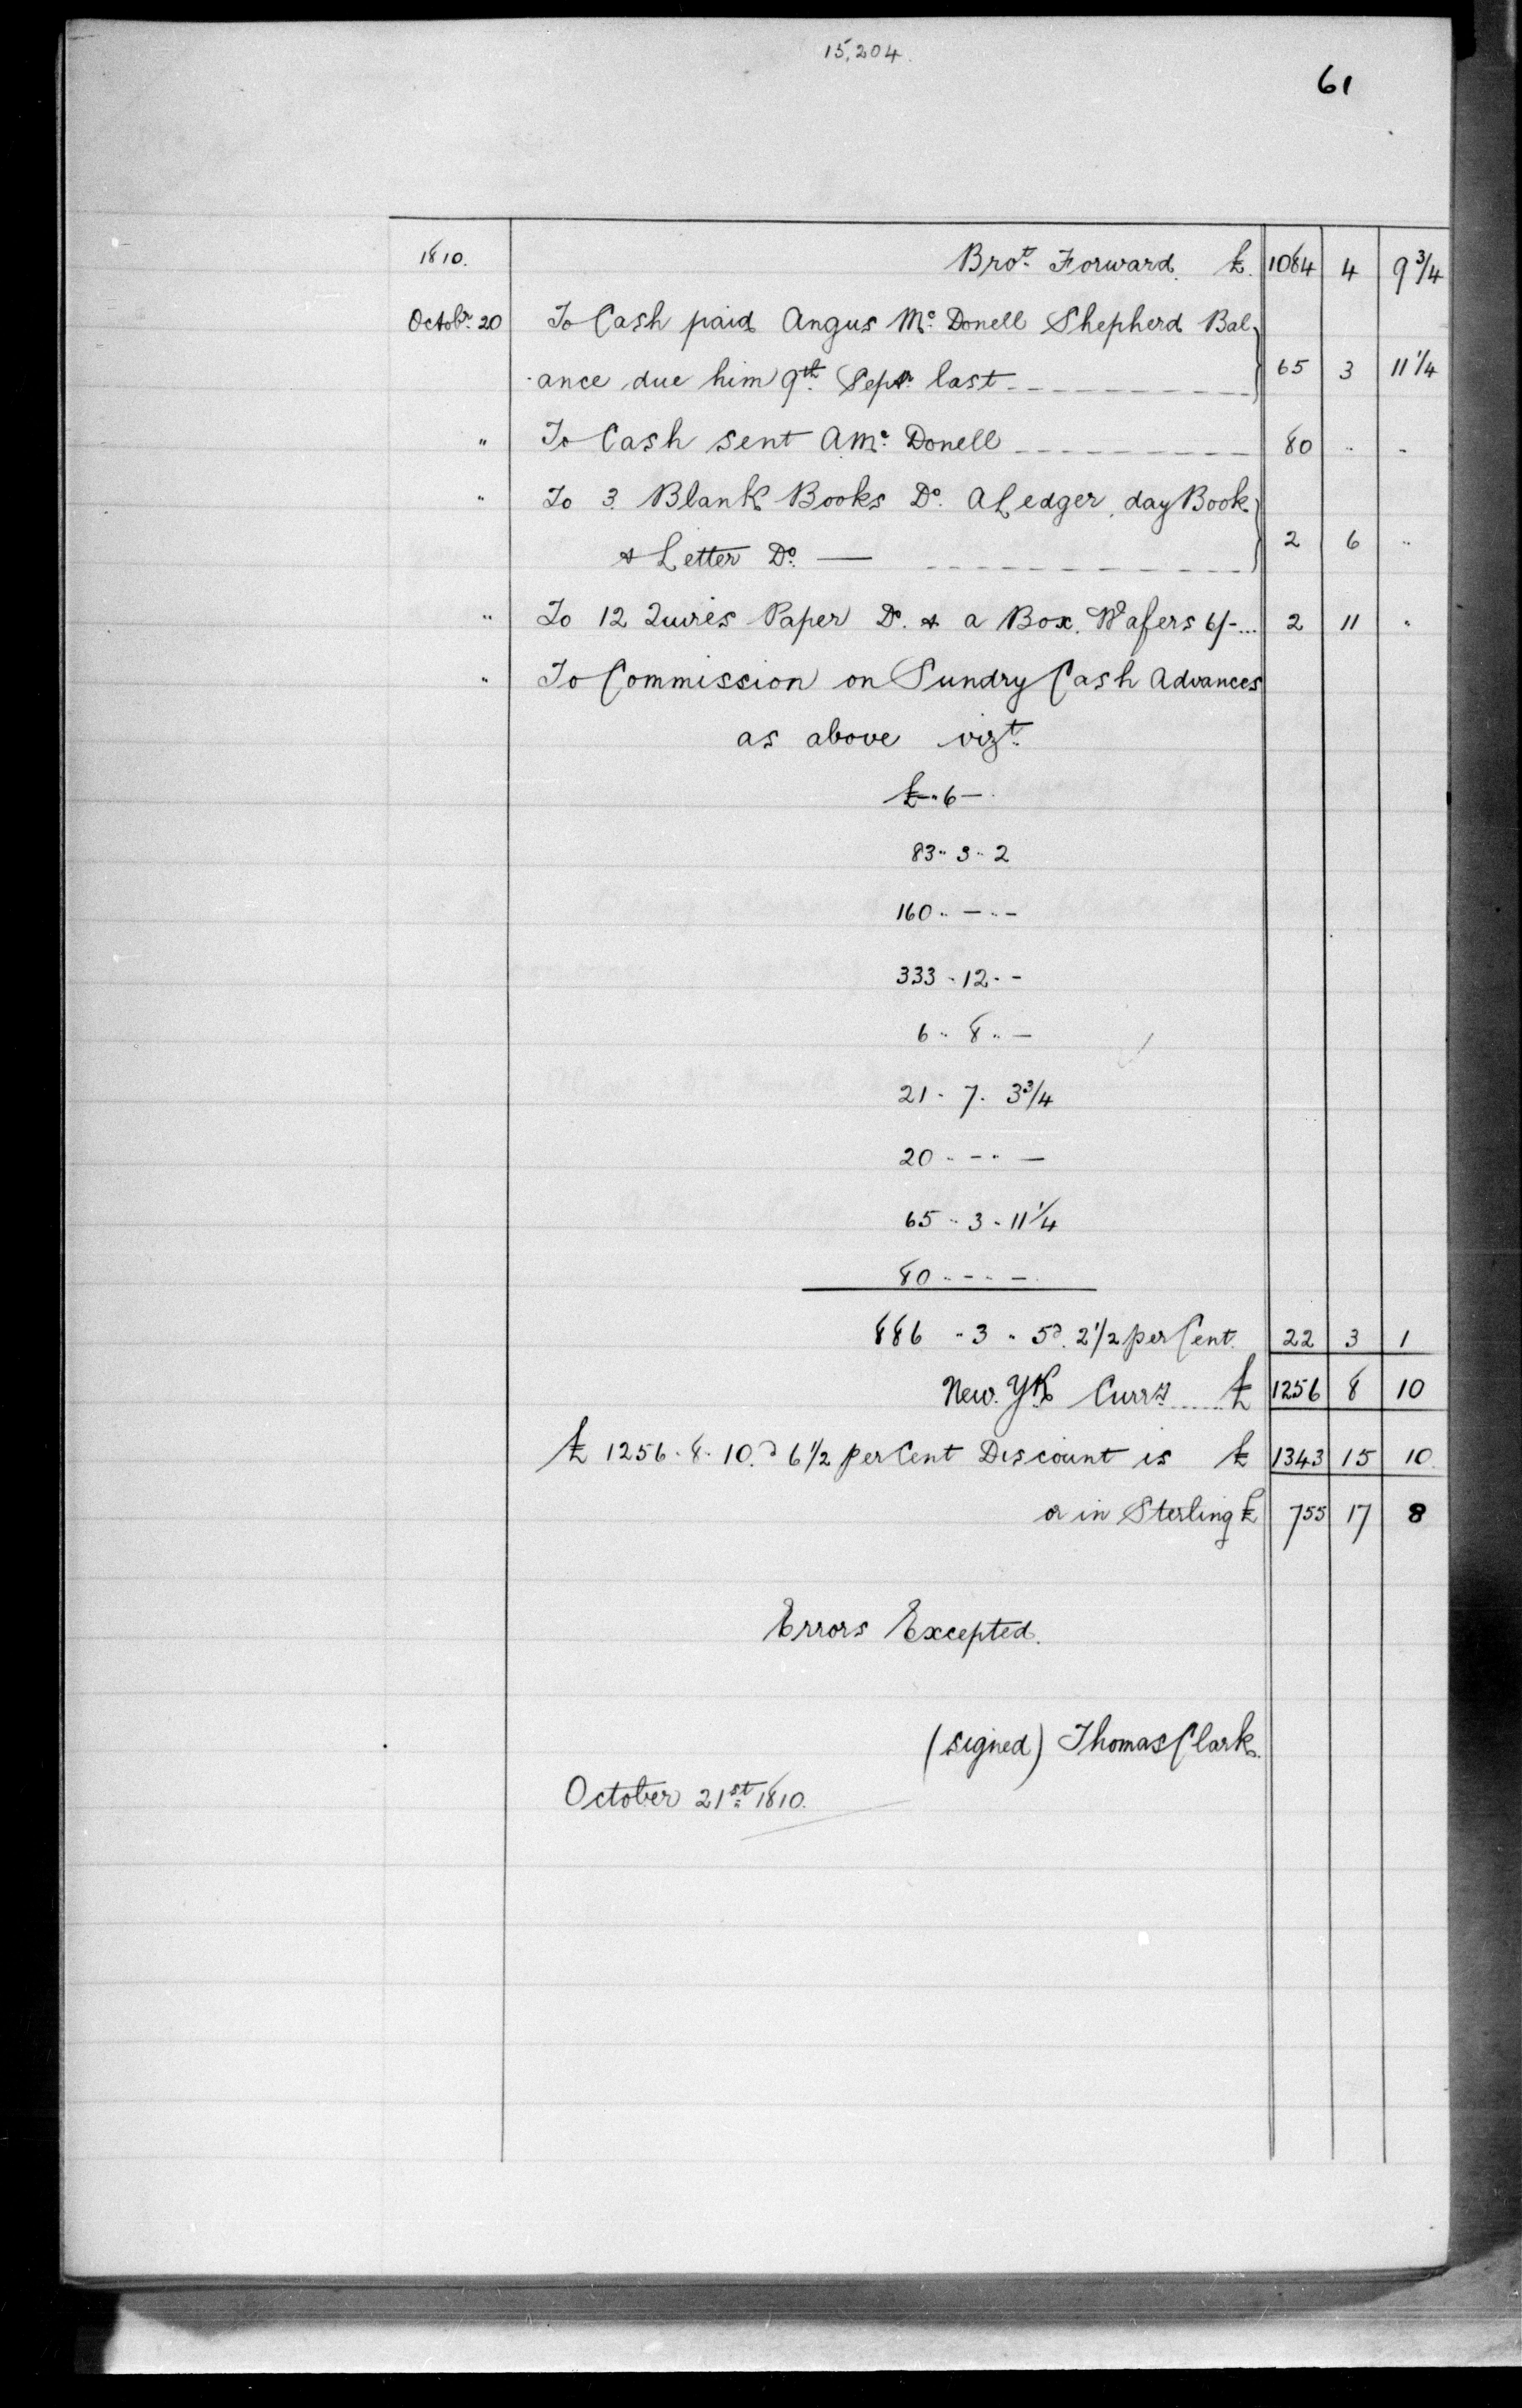 15,204.
61
1810. Brot. Forward. £. 1084 4 9 3/4
Octobr. 20 To Cash paid Angus Mc. Donell Shepherd Bal
-ance due him 9th. Sepr. last 65 3 11 1/4
" To Cash sent A. Mc. Donell 80 " -
" To 3 Blank Books Do. A Ledger, day Book
& Letter Do. — 2 6 "
" To 12 Quires Paper Do. & a Box. Wafers 6/- ... 2 11 "
" To Commission on Sundry Cash Advances
as above vizt.
£ - " 6 -
83 " 3 " 2
160 " - " -
333 " 12 " -
6 " 8 " -
21 " 7 " 3 3/4
20 " - " -
65 " 3 " 11 1/4
80 " - " -
886 " 3 " 5 @ 2 1/2 per Cent. 22 3 1
New. Yk. Curry. £ 1256 8 10
£ 1256 " 8 " 10 @ 6 1/2 per Cent Discount is £ 1343 15 10.
or in Sterling £ 755 17 8
Errors Excepted.
(signed) Thomas Clark.
October 21st. 1810.